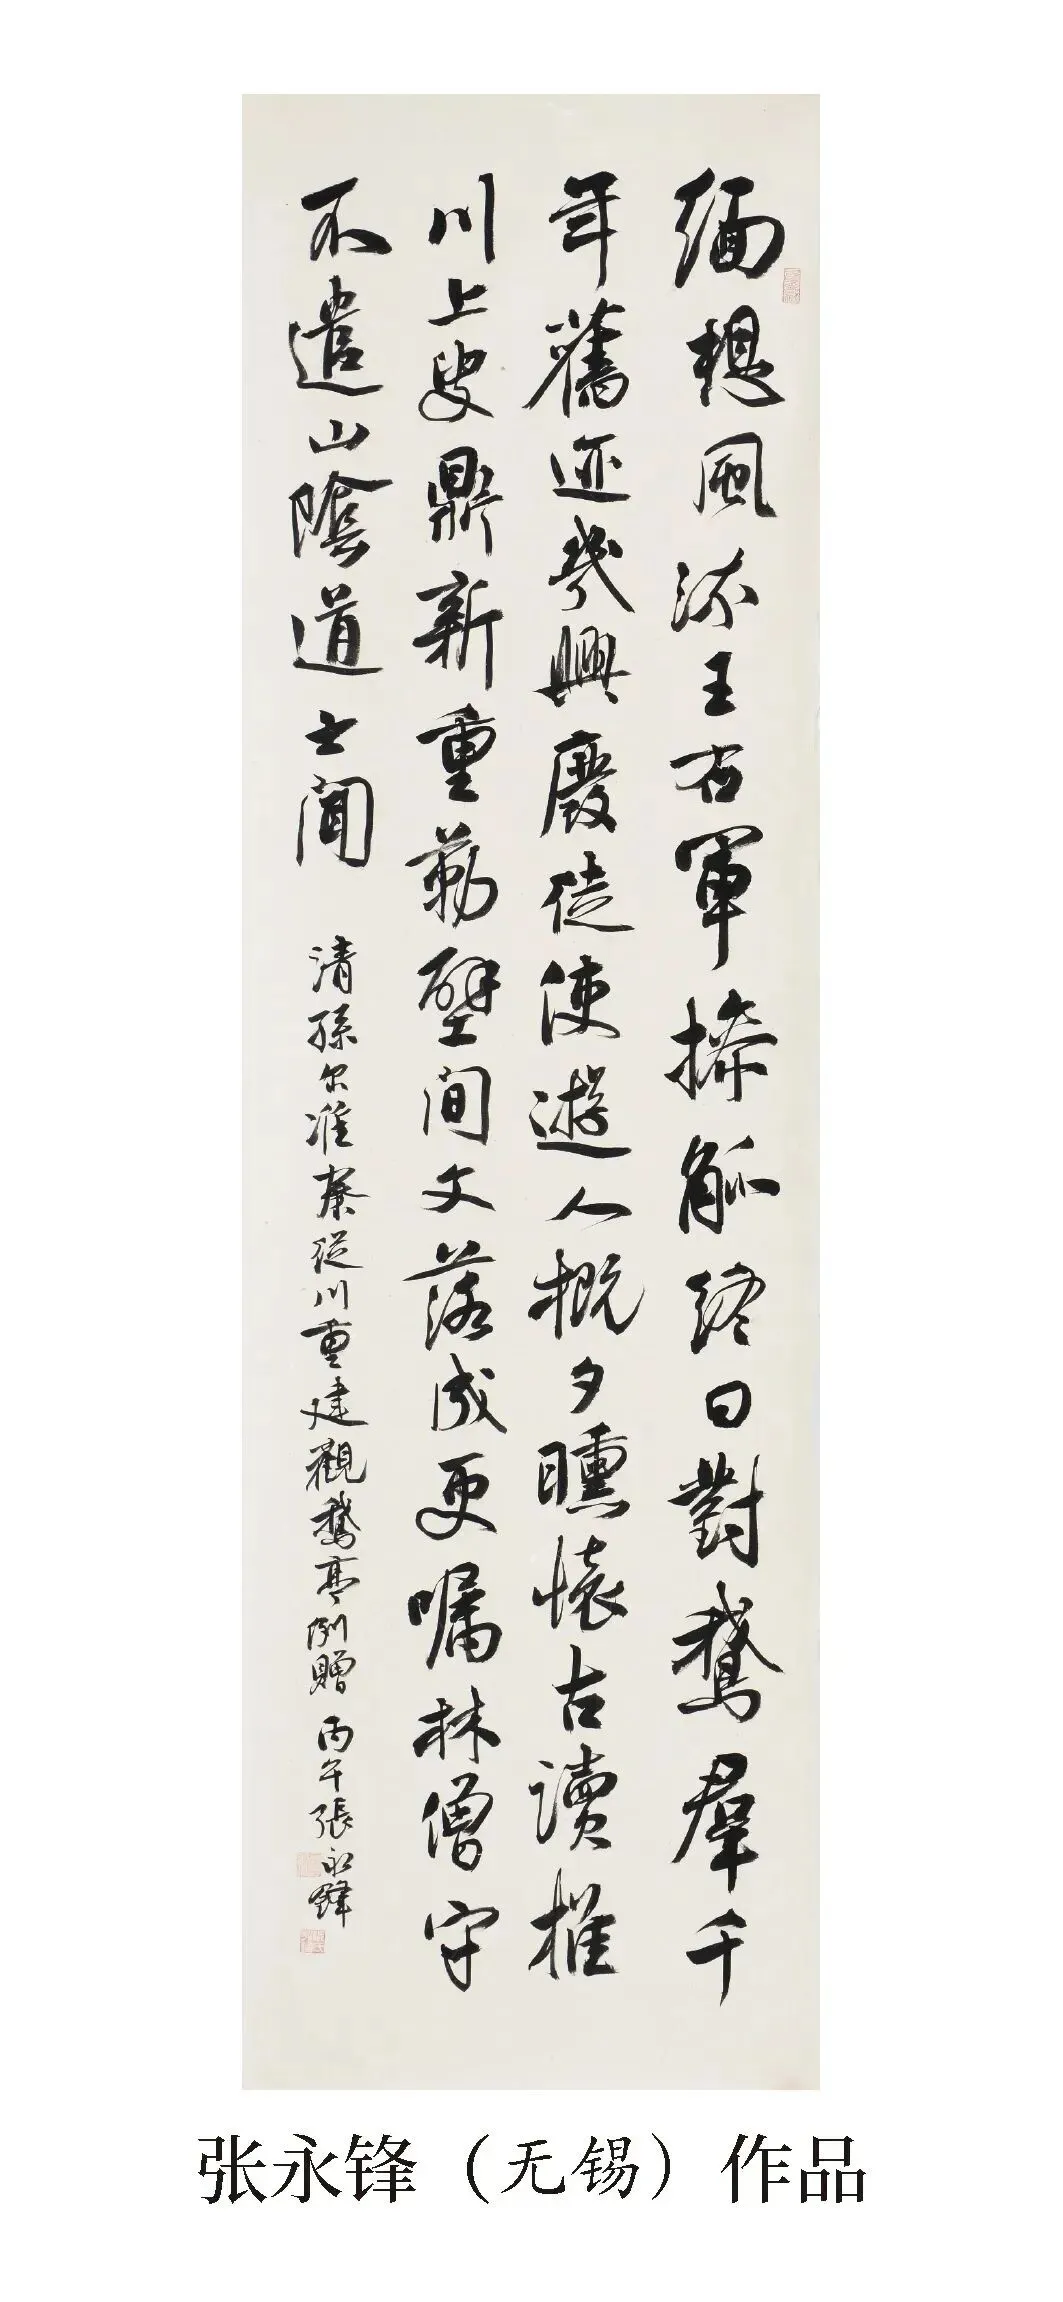 缅想風流王右軍捧觚终日對鵝羣千
年舊迹幾興廢徒使遊人概夕曛懷古讀椎
川上叟鼎新重勒壁间文落成更嘱林僧守
不遣山陰道士闻
清孫尔準秦從川重建觀鵝亭例贈 丙午張永鋒
张永锋（无锡）作品